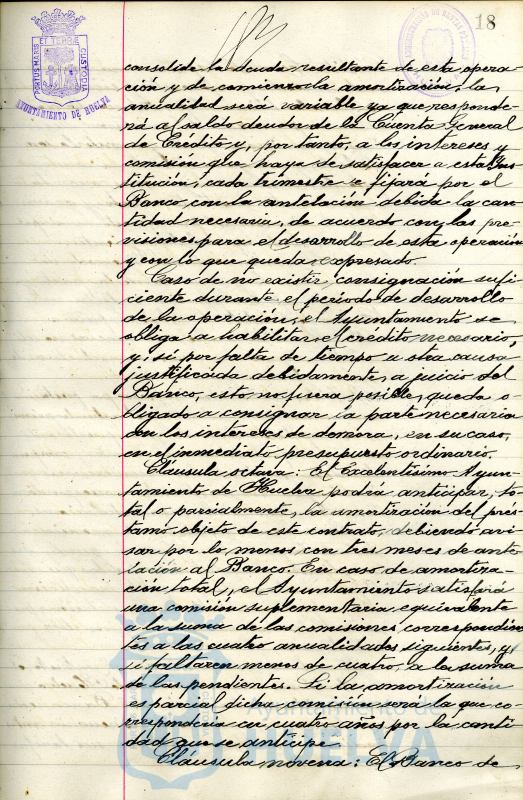 18
PORTUS MARIS ET TERRAE CUSTODIA
AYUNTAMIENTO DE HUELVA
consolide la deuda resultante de esta opera-
ción y de comienzo la amortización, la
anualidad será variable ya que responde-
rá al saldo deudor de la Cuenta General
de Crédito y, por tanto, a los intereses y
comisión que haya de satisfacer a esta Ins-
titución, cada trimestre se fijará por el
Banco con la antelación debida la can-
tidad necesaria, de acuerdo con las pre-
visiones para el desarrollo de esta operación
y con lo que queda expresado.
Caso de no existir consignación sufi-
ciente durante el período de desarrollo
de la operación, el Ayuntamiento se
obliga a habilitar el crédito necesario,
y si por falta de tiempo u otra causa
justificada debidamente, a juicio del
Banco, esto no fuera posible, queda o-
bligado a consignar la parte necesaria
con los intereses de demora, en su caso,
en el inmediato presupuesto ordinario.
Cláusula octava: El Excelentísimo Ayun-
tamiento de Huelva podrá anticipar, to-
tal o parcialmente, la amortización del prés-
tamo objeto de este contrato, debiendo avi-
sar por lo menos con tres meses de ante-
lación al Banco. En caso de amortiza-
ción total, el Ayuntamiento satisfará
una comisión suplementaria equivalente
a la suma de las comisiones correspondien-
tes a las cuatro anualidades siguientes, y
si faltaren menos de cuatro, a la suma
de las pendientes. Si la amortización
es parcial dicha comisión será la que co-
rrespondería en cuatro años por la canti-
dad que se anticipe.
Cláusula novena: El Banco de
Ayuntamiento de
HUELVA